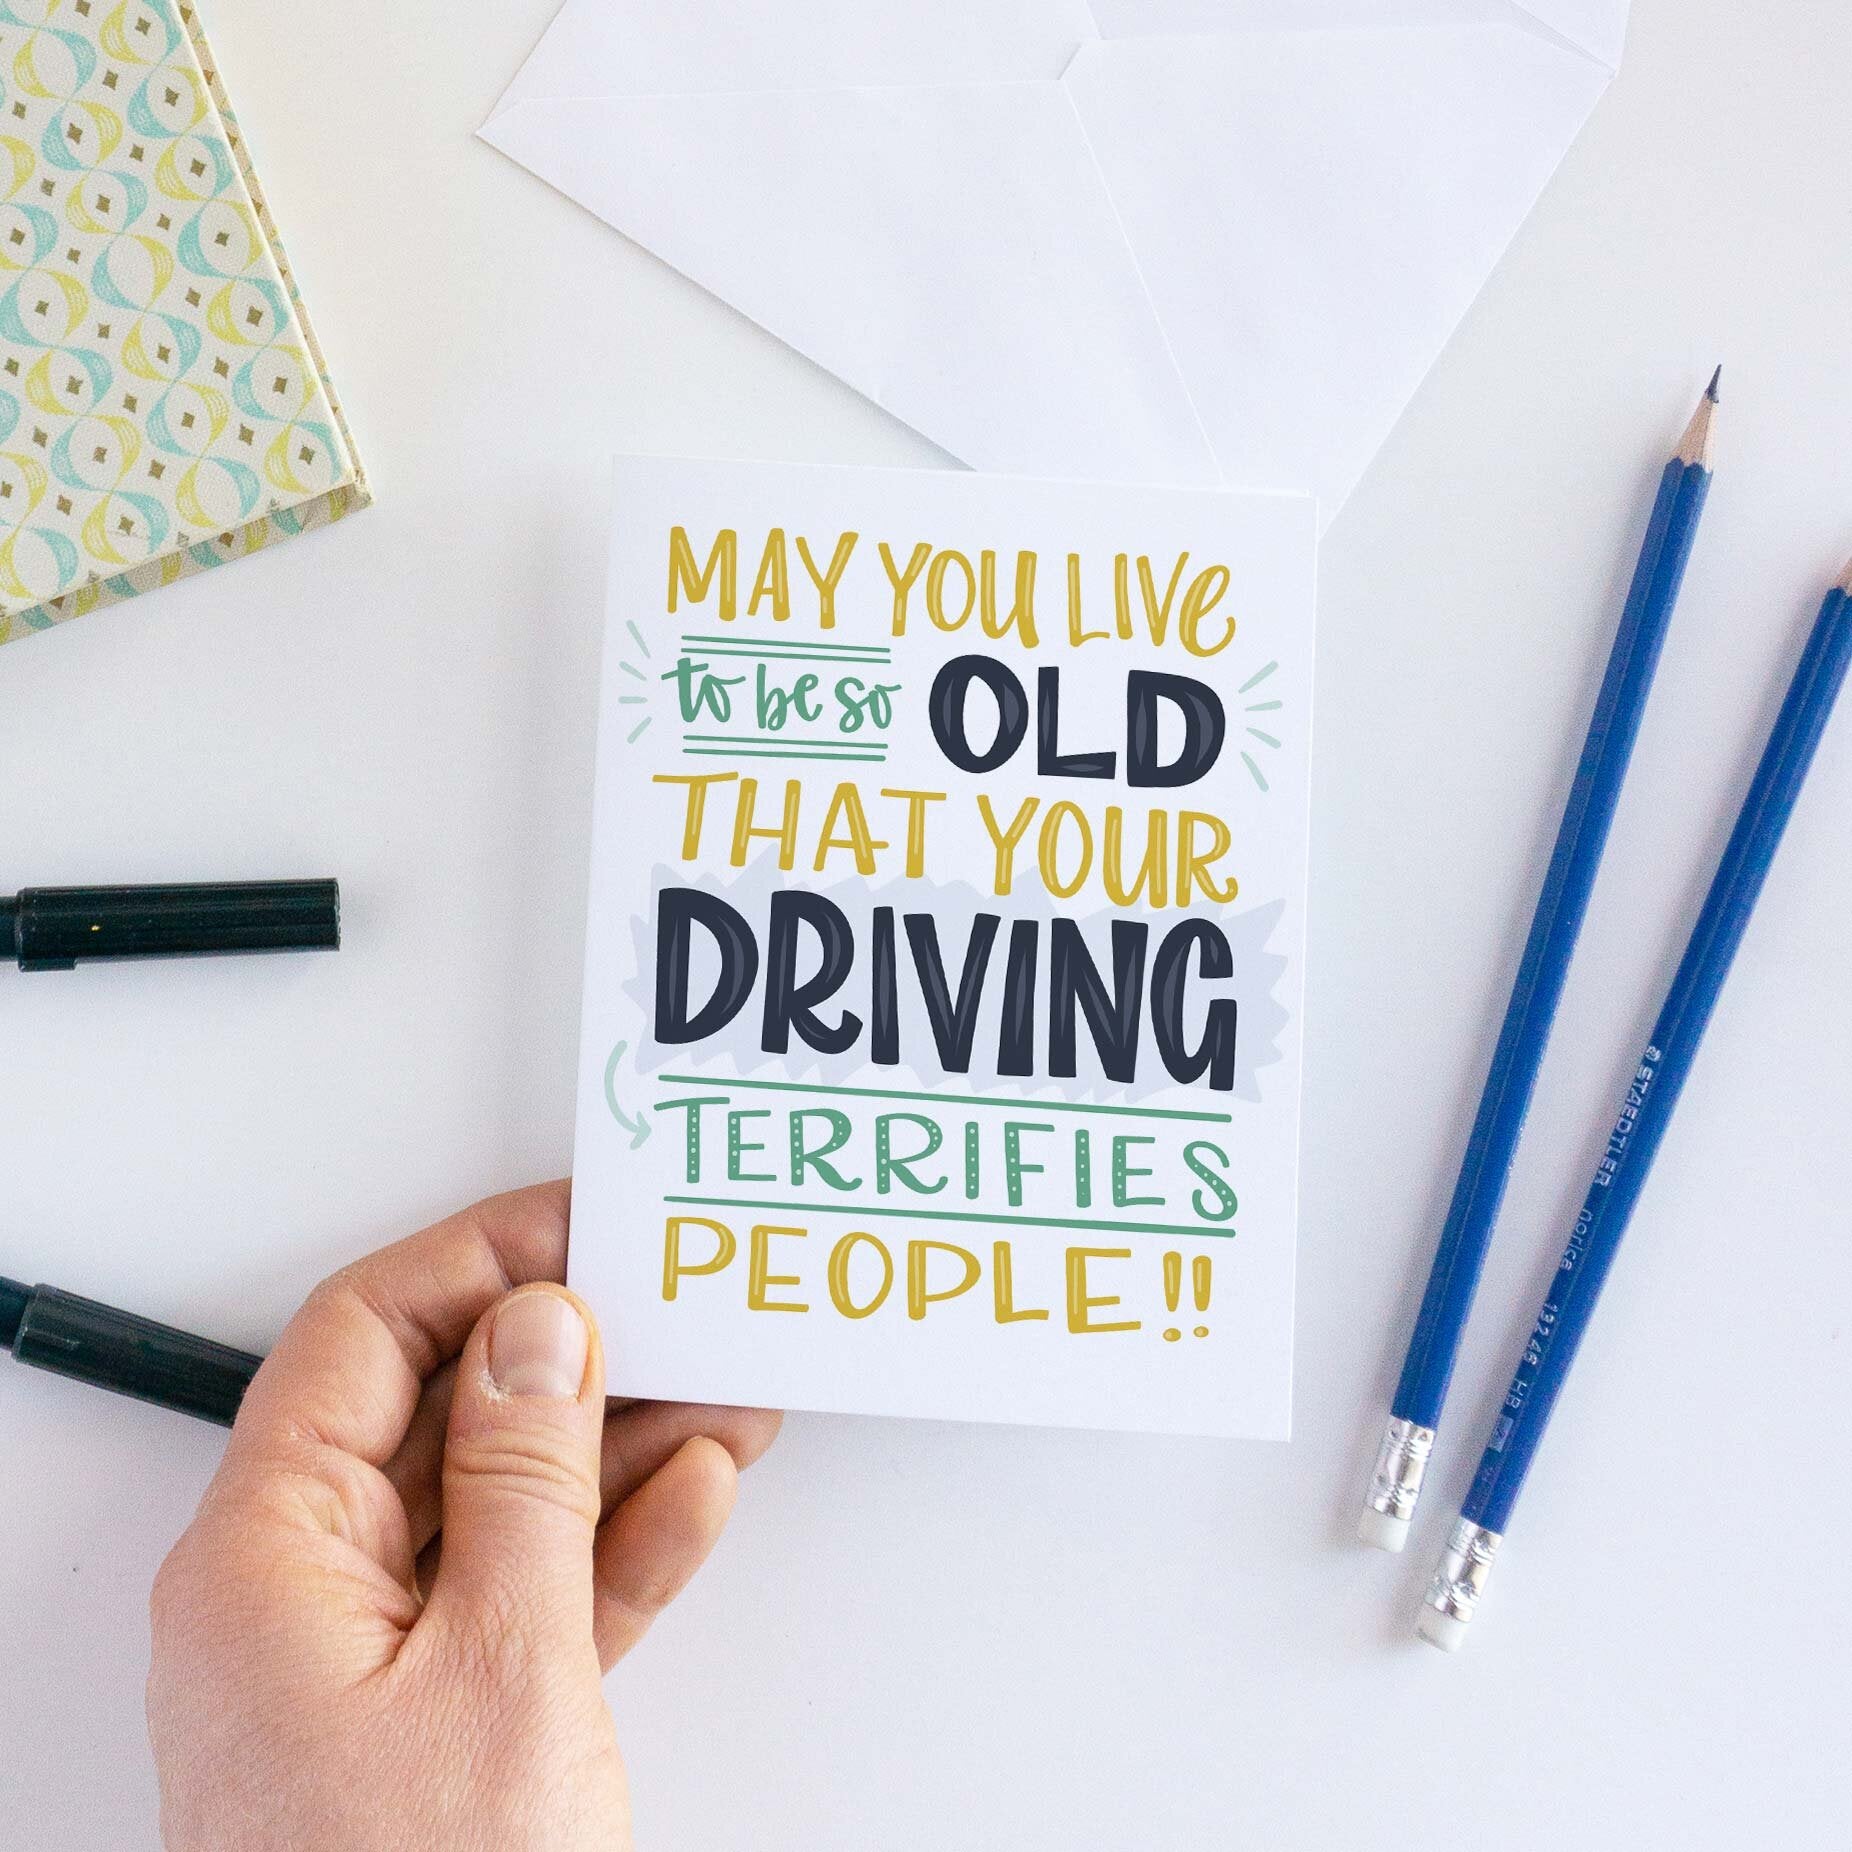 MAY YOU LIVE
to be so OLD
THAT YOUR
DRIVING
TERRIFIES
PEOPLE!!
STAEDTLER norica 132 46 HB